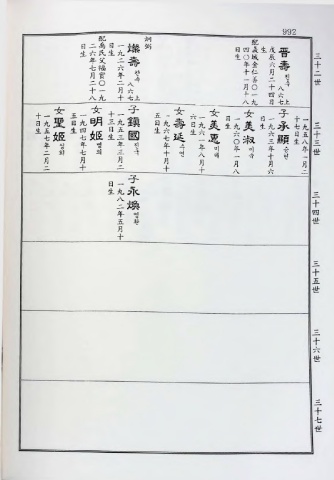 992
三十二世
三十三世
三十四世
三十五世
三十六世
三十七世
晋壽 진수
八六七
上
戊辰六月二十四日
生
配義城金仁善一九
四〇年十一月十八
日生
炯弼
燦壽 찬수
八六七
上
一九二六年二月十
日生
配禹氏父福官一九
二六年七月二十八
日生
一九五八年一月二
十七日生
子承顯 승현
一九六三年十月六
日生
女美淑 미숙
一九六〇年一月八
日生
女美惠 미혜
一九六一年八月十
六日生
女壽延 수연
一九六七年十月十
五日生
子鎭國 진국
一九五三年三月二
十三日生
女明姬 명희
一九四七年七月十
五日生
女聖姬 성희
一九五七年二月二
十日生
子永煥 영환
一九八二年五月十
日生